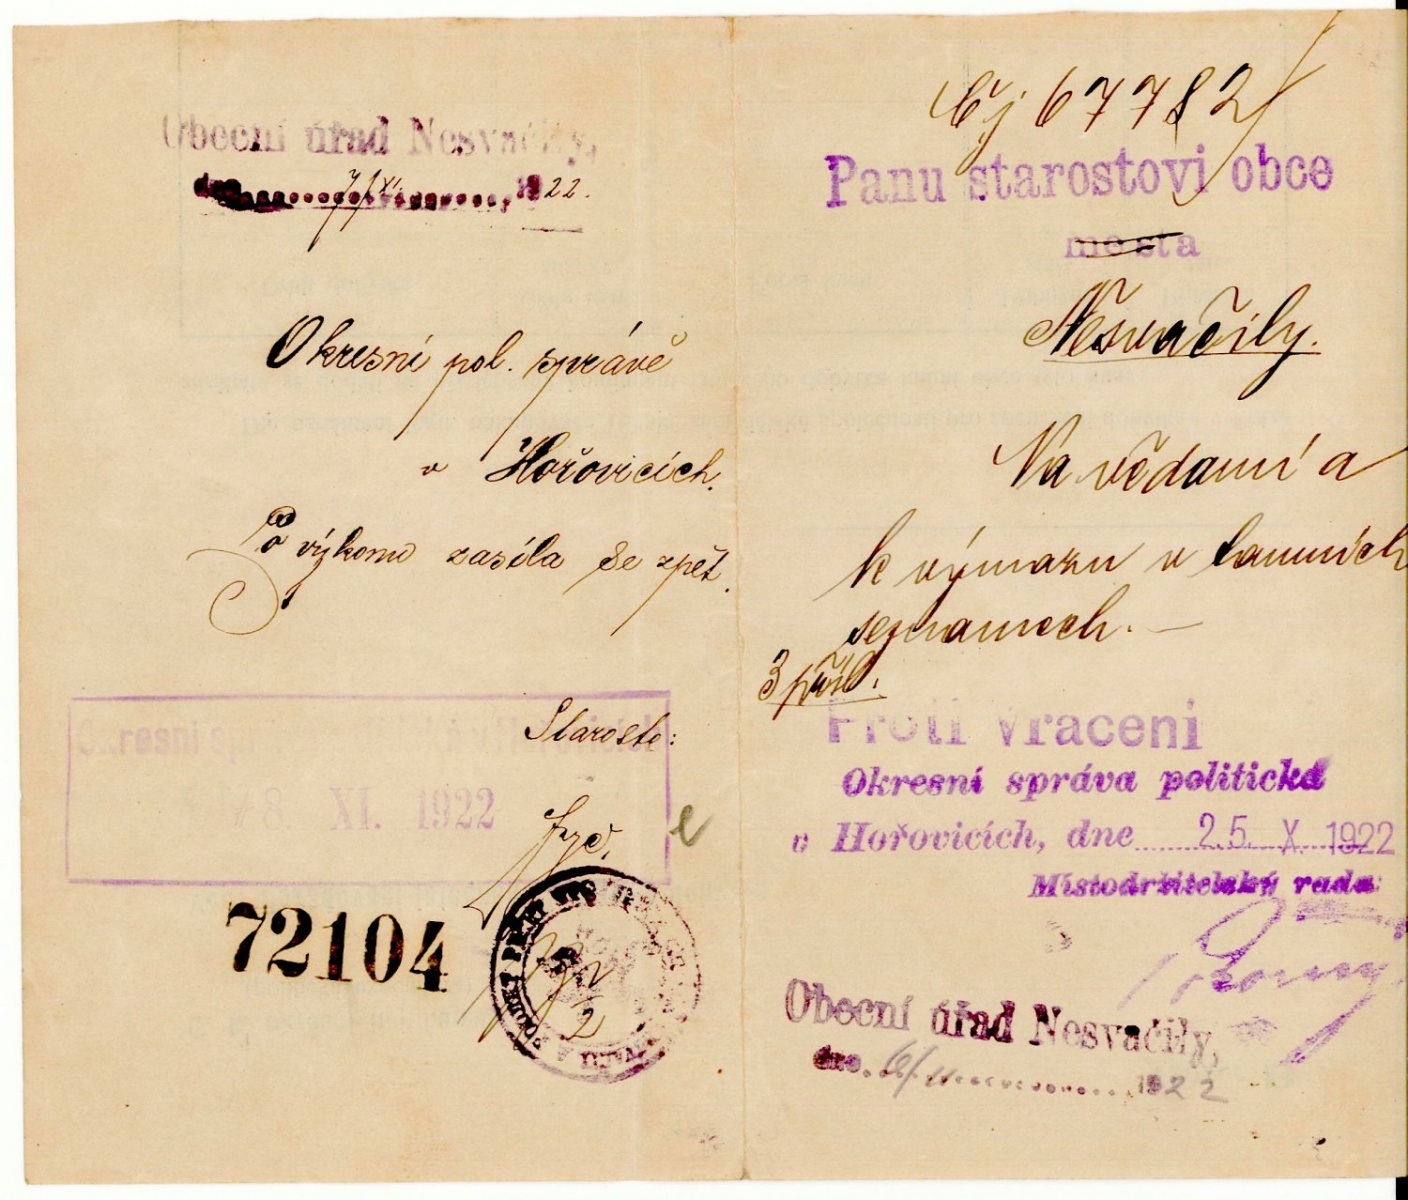 Obecní úřad Nesvačily,
dne 7/XI. 1922.
Okresní pol. správě
v Hořovicích.
Po výkonu zasílá se zpět.
Starosta:
8 XI. 1922
72104
Čj 67782/
Panu starostovi obce
města
Nesvačily.
Na vědomí a
k výmazu v tamních
seznamech. —
3 příl.
Proti vrácení
Okresní správa politická
v Hořovicích, dne 25. X. 1922
Místodržitelský rada:
Obecní úřad Nesvačily,
dne 6/11 1922